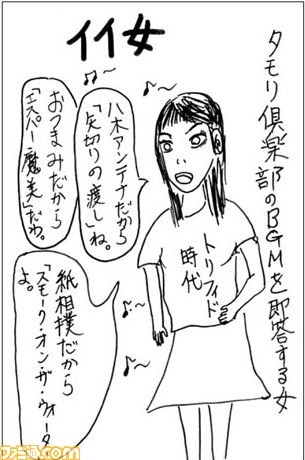 イイ女
タモリ倶楽部のBGMを即答する女
八木アンテナだから
「矢切りの渡し」ね。
おつまみだから
「エスパー魔美」だわ。
紙相撲だから
「スモーク・オン・ザ・ウォーター」
よ。
トリフィド
時代
ファミ通.com